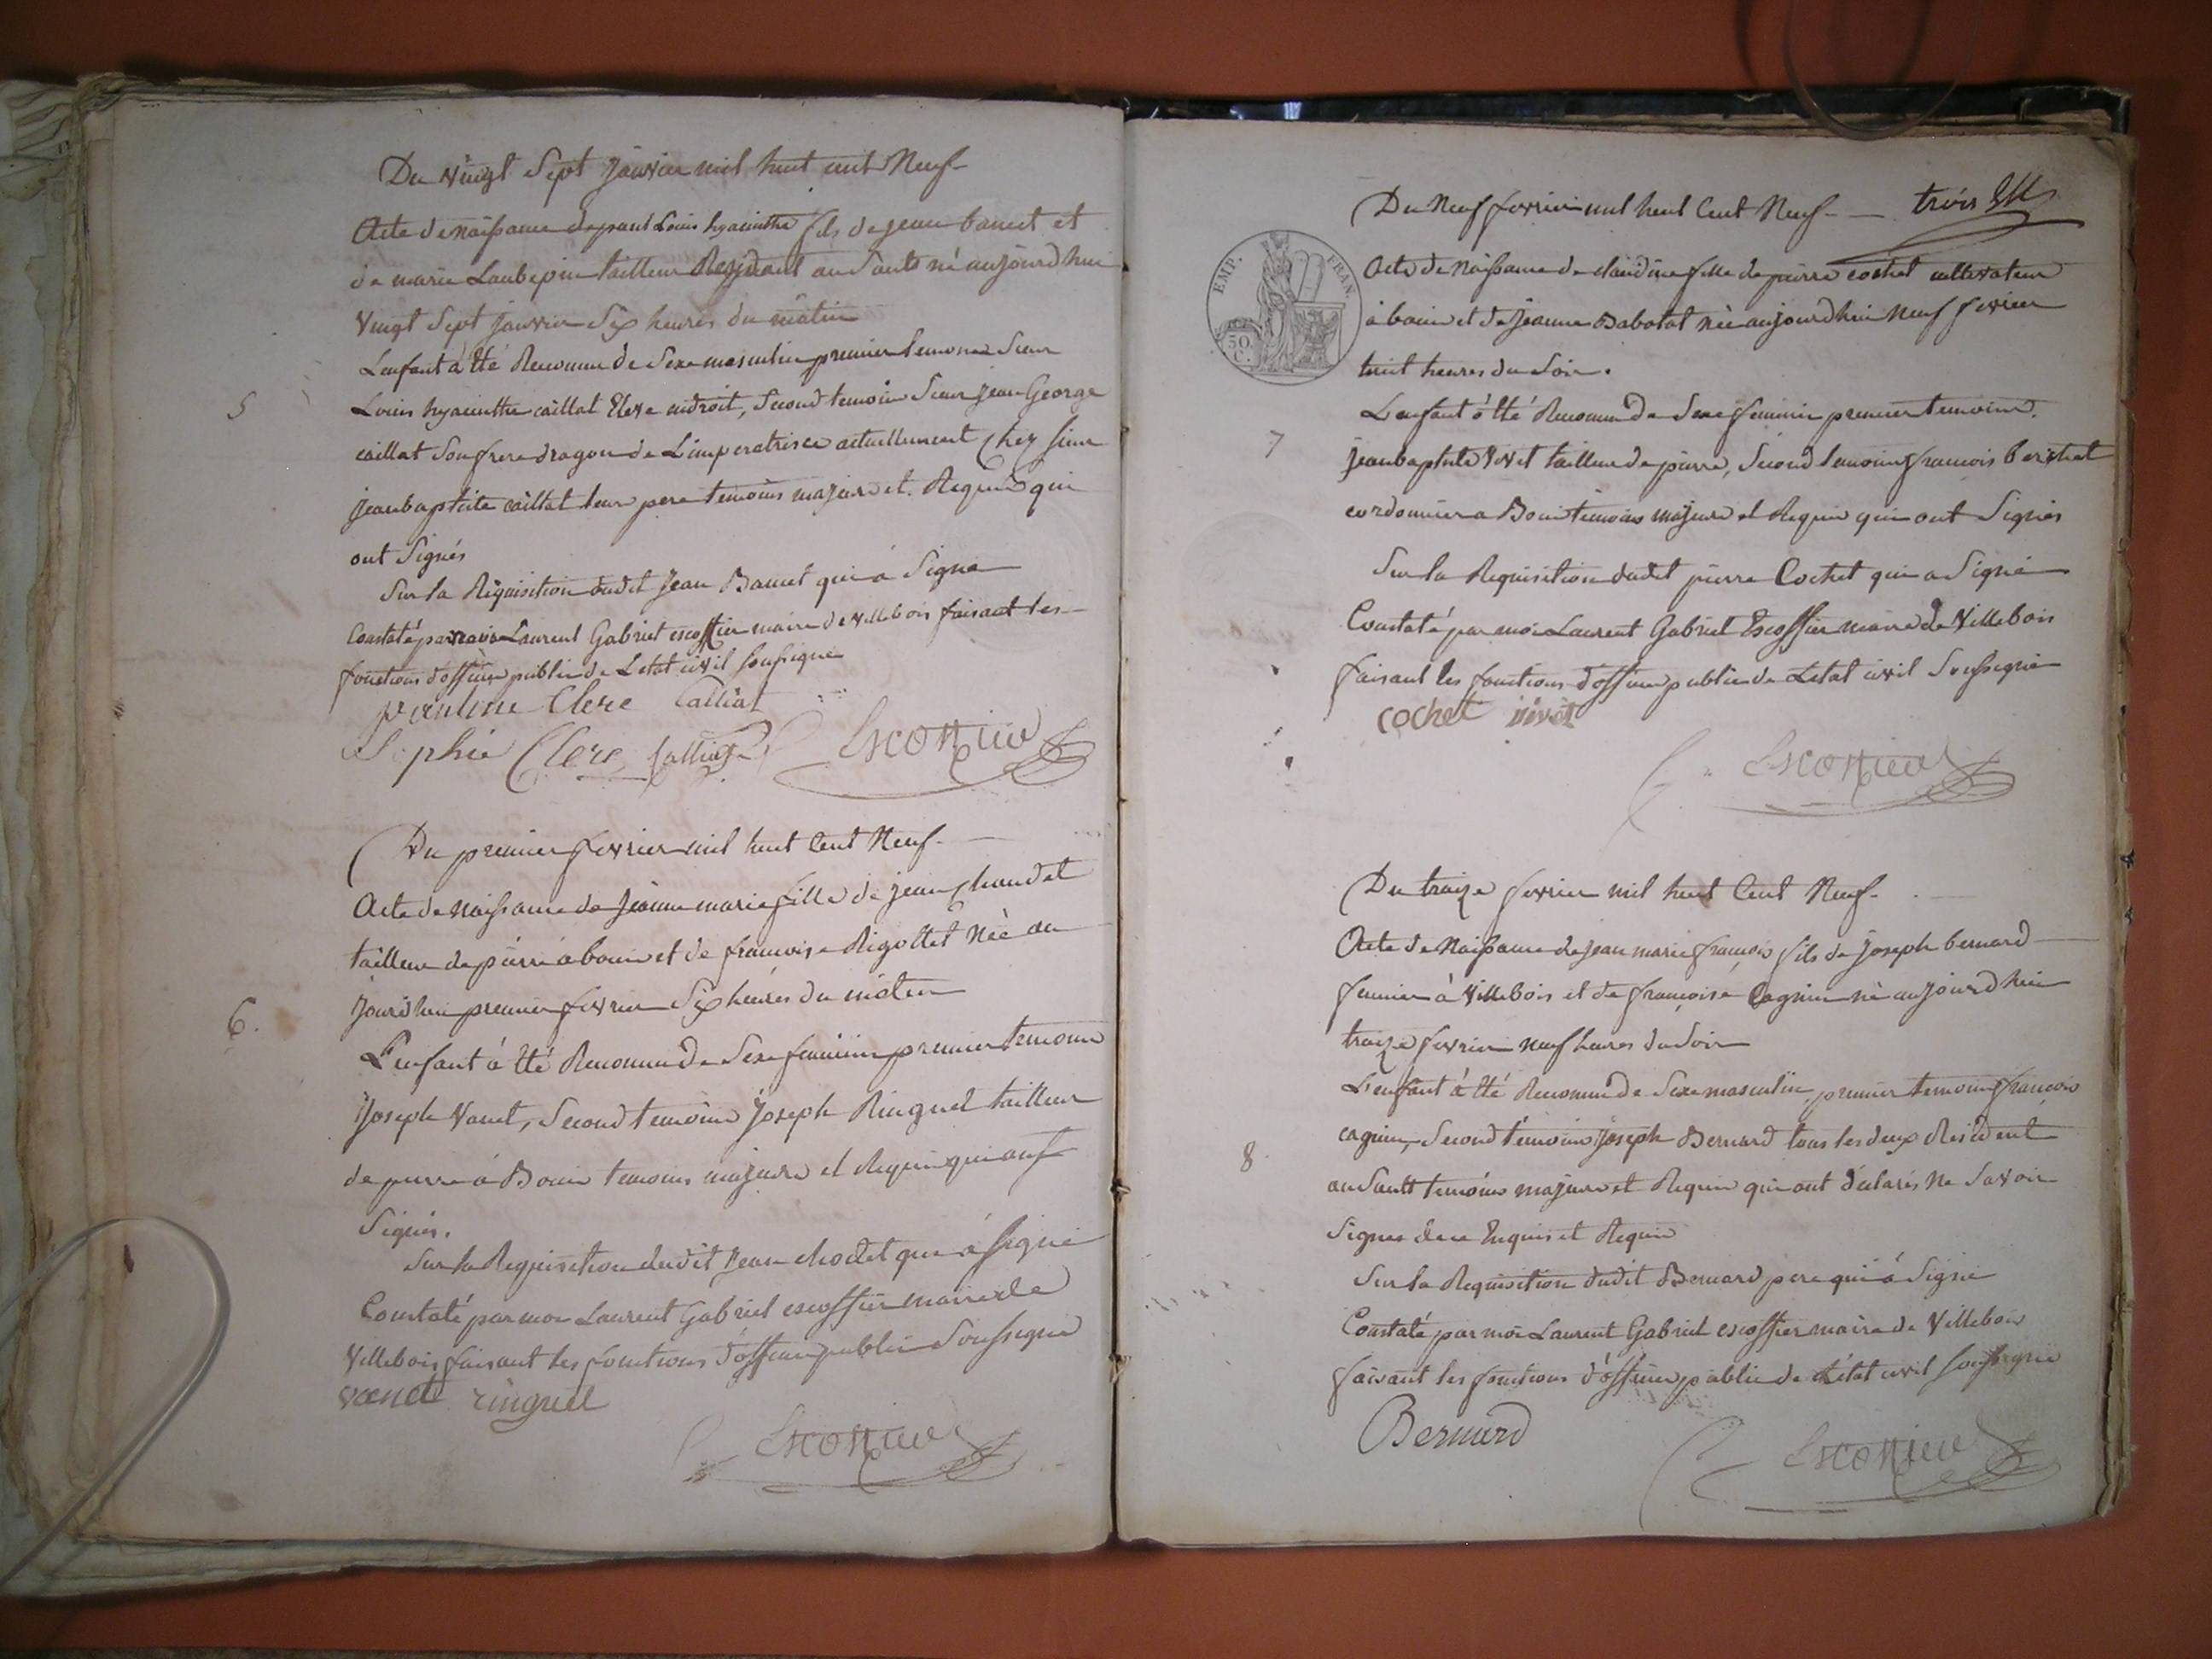 Du vingt Sept janvier mil huit cent Neuf
Acte de naissance de paul Louis hyacinthe fils de jean banet et
de marie Laubepin tailleur Residant au Sault né aujourd'hui
vingt Sept janvier Six heures du matin
L'enfant à été Reconnu de Sexe masculin premier temoin Sieur
5
Louis hyacinthe caillat Eleve endroit, Second temoin Sieur jean George
caillat Son frere dragon de L'imperatrice actuellement chez Sieur
jean baptiste caillat leur pere temoins majeurs et Requis qui
ont Signés
Sur la Réquisition dudit Jean Banet qui à Signé
Constaté par moi Laurent Gabriel escoffier maire de villebois faisant les
fonctions d'officier public de L'etat civil soussigné
pauline Clerc Calliat
Sophie Clerc Calliat Escoffier
Du premier fevrier mil huit Cent Neuf
Acte de Naissance de jeanne marie fille de jean chaudet
tailleur de pierre à bouis et de francoise Rigottet Née au
6.
jourd'hui premier fevrier Six heures du matin
L'enfant à été Reconnu de Sexe feminin premier temoin
Joseph Vanet, Second temoin Joseph Ringuet tailleur
de pierre à Bouis temoins majeurs et Requis qui ont
Signés.
Sur la Requisition dudit Jean chodet qui à Signé
Constaté par moi Laurent Gabriel escoffier maire de
Villebois faisant les fonctions d'officier public Soussigné
vanet ringuet
Escoffier
Du Neuf fevrier mil huit Cent Neuf trois
EMP. FRAN.
50. C.
Acte de Naissance de claudine fille de pierre cochet cultivateur
à bouis et de jeanne Babolat née aujourd'hui neuf fevrier
huit heures du Soir.
L'enfant à été Reconnu de Sexe feminin premier temoin
7
jean baptiste vivet tailleur de pierre, Second temoin francois berchet
cordonnier a Bouis temoins majeurs et Requis qui ont Signés
Sur la Requisition dudit pierre Cochet qui a Signé
Constaté par moi Laurent Gabriel Escoffier maire de Villebois
faisant les fonctions d'officier public de L'etat civil Soussigné
cochet vivet
Escoffier
Du traize fevrier mil huit Cent Neuf
Acte de Naissance de jean marie françois fils de joseph bernard
fermier à Villebois et de françoise Cagnin né aujourd'hui
traize fevrier neuf heures du Soir
L'enfant à été Reconnu de Sexe masculin, premier temoin francois
cagnin, Second temoin joseph Bernard tous les deux Residant
8.
au Sault temoins majeurs et Requis qui ont déclarés ne Savoir
Signer de ce Enquis et Requis
Sur la Requisition dudit Bernard pere qui à Signé
Constaté par moi Laurent Gabriel escoffier maire de Villebois
faisant les fonctions d'officier public de L'état civil soussigné
Bernard
Escoffier